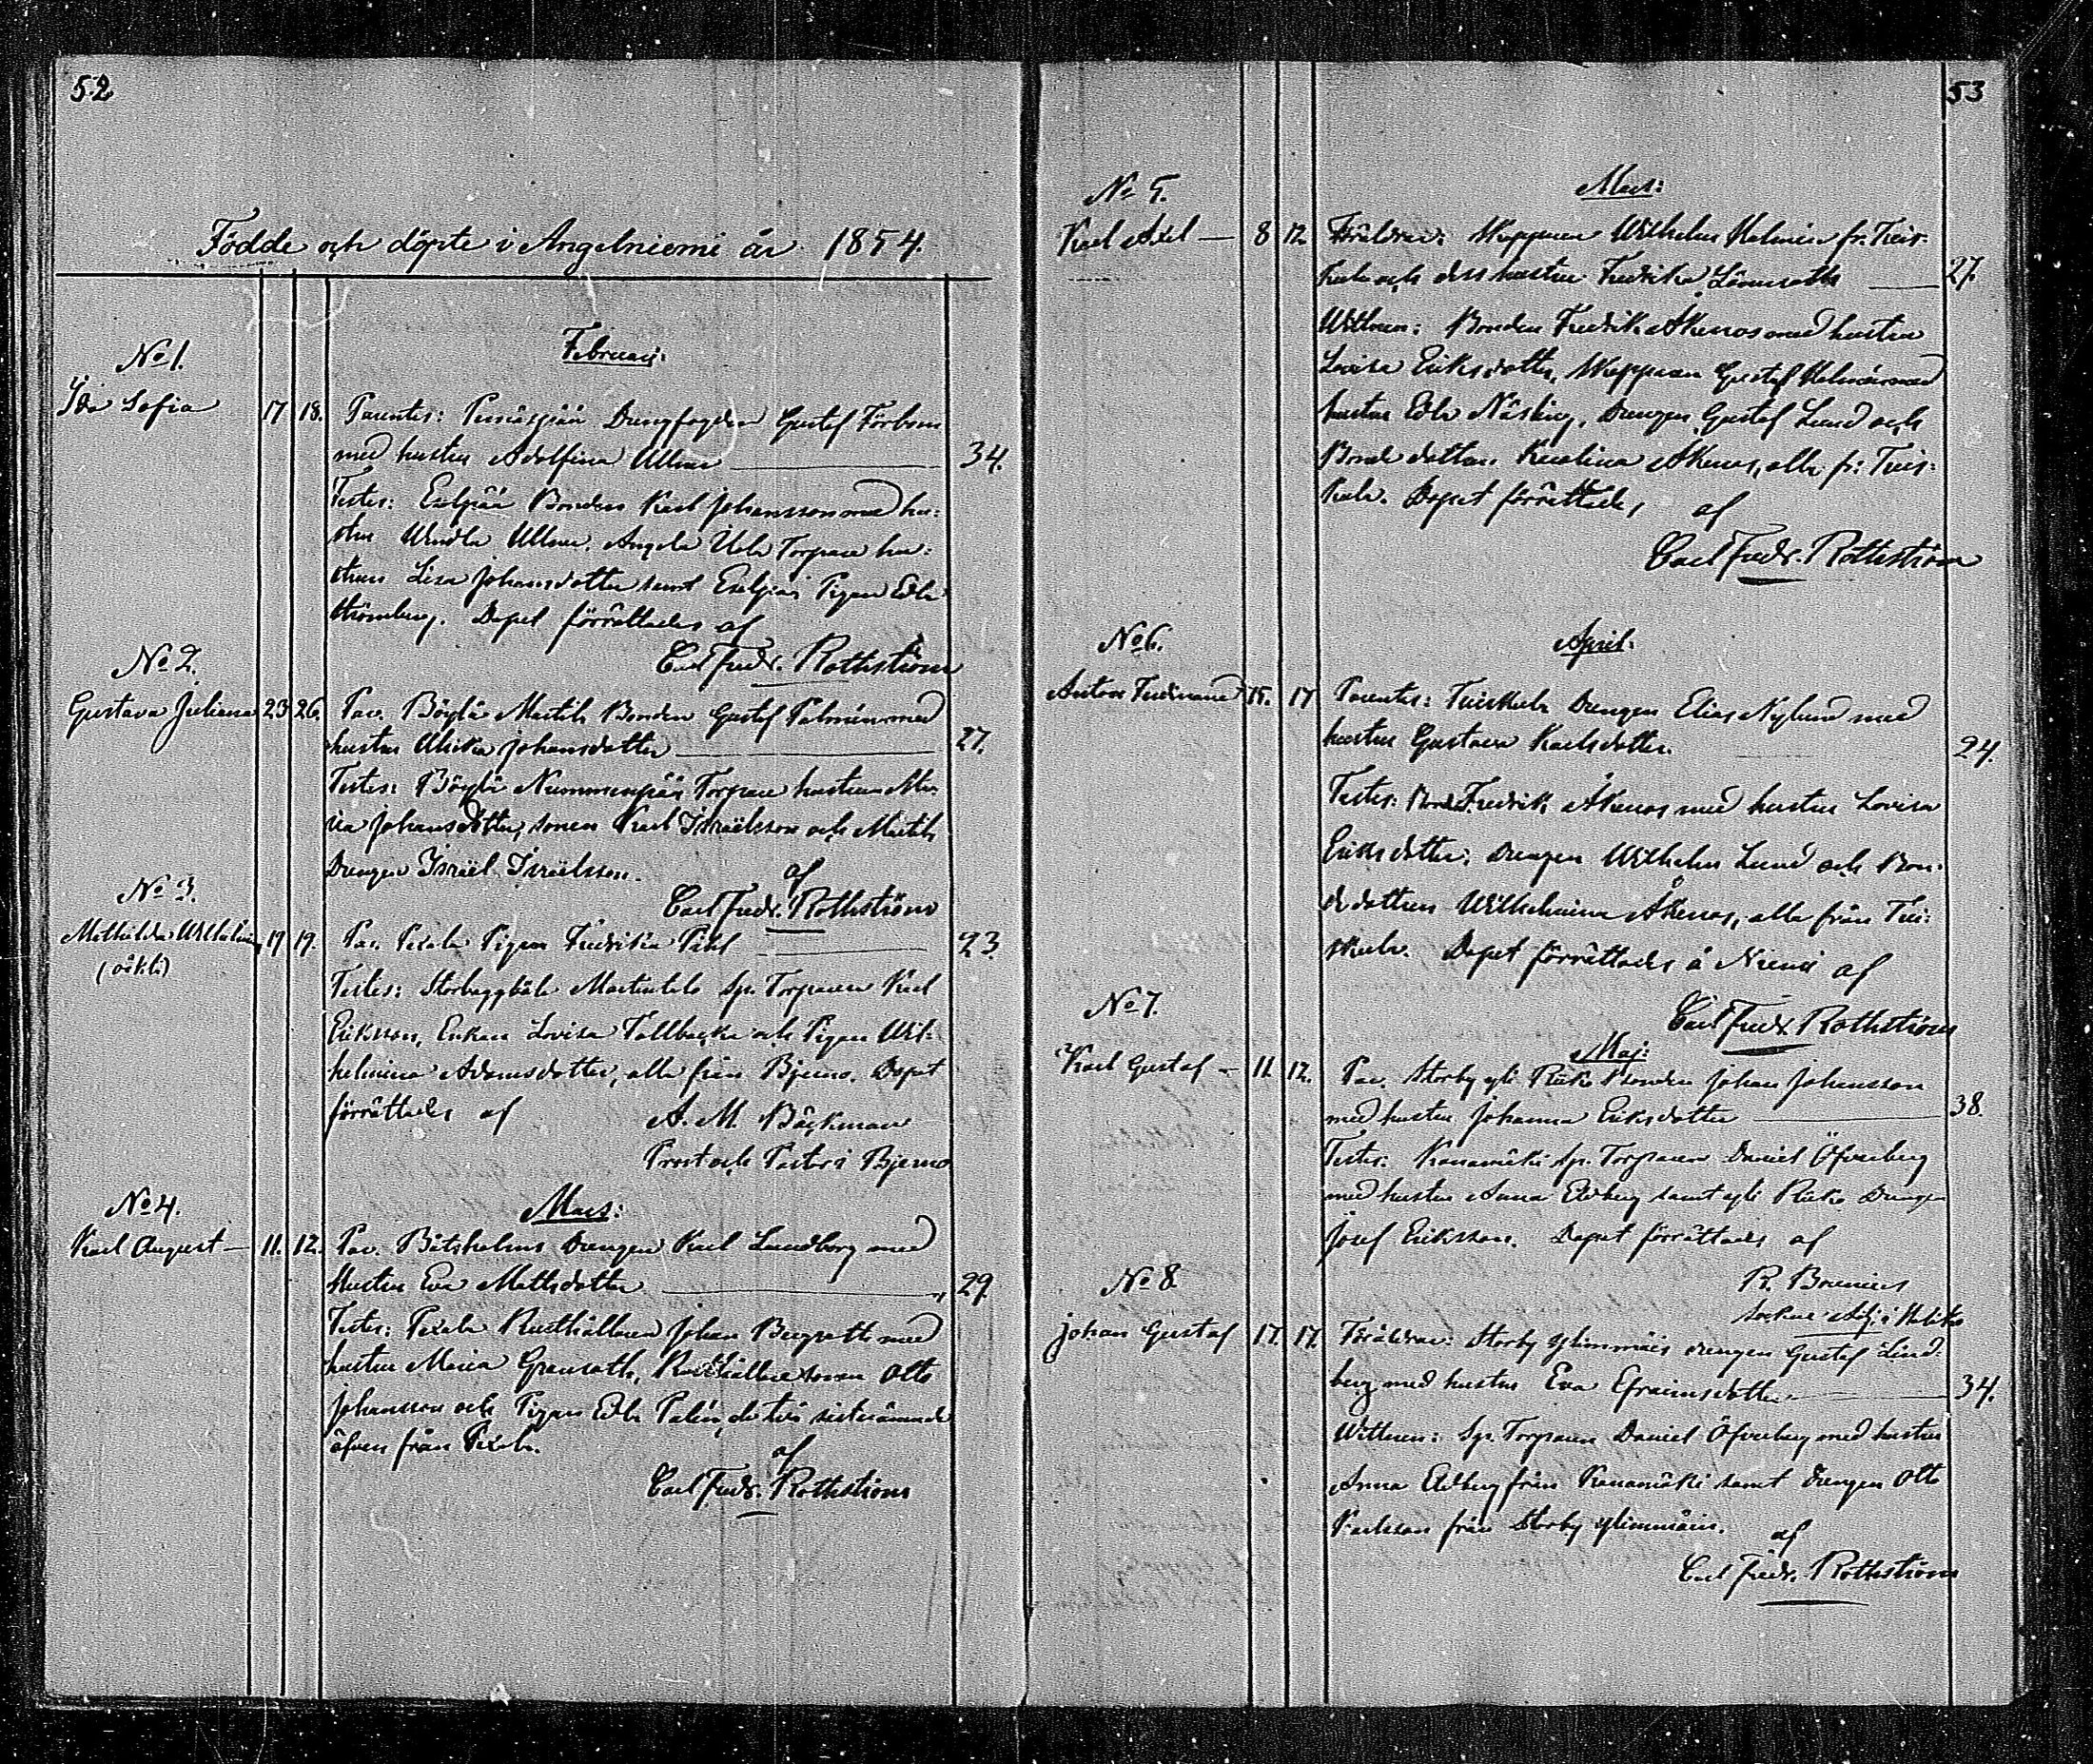 52
Födde och döpte i Angelniemi år 1854.
Februari:
No 1.
Ida Sofia 17 18. Parentes: Drengfogden Gustaf Förbom
med hustru Adolfina Ullner 34.
Testes: Bonden Karl Johansson med hu-
stru Wendla Ullner, Angela Torpare hu-
strun Lisa Johansdotter samt Pigan Edla
Strömberg. Dopet förrättades af
Carl Fredr. Rothström
No 2.
Gustava Juliana 23 26. Par. Böylä Mattila Bonden Gustaf Palmén med
hustru Ulrika Johansdotter 27.
Testes: Böylä Nummenpää Torpare hustrun Ma-
ria Johansdotter, sonen Karl Israëlsson och Mattila
Drengen Israël Israëlsson.
af
Carl Fredr. Rothström
No 3.
Mathilda Wilhelmina 19 19. Par. Pexala Pigan Fredrika Pihl 23
(oäkta)
Testes: Torparen Karl
Eriksson, Enkan Lovisa Tallbacka och Pigan Wil-
helmina Adamsdotter, alla från Bjerno. Dopet
förrättades af A. M. Bäckman
Prost och Pastor i Bjerno
No 4.
Mars:
Karl August 11. 12. Par. Båtsholms Drengen Karl Lundborg med
Hustru Eva Mattsdotter 29.
Testes: Pexala Rusthållaren Johan Bergroth med
hustru Maria Granroth, Rusthållare sonen Otto
Johansson och Pigan Edla Palén, de två sistnämnde
äfven från Pexala.
af
Carl Fredr. Rothström
53
Mars:
No 5.
Karl Axel 8 12 Föräldrar: Skepparen Wilhelm Helmén fr. Tuis-
kula och dess hustru Fredrika Lönnroth 27.
Wittnen: Bonden Fredrik Åkenas med hustru
Lovisa Eriksdotter, Skepparen Gustaf Helmén med
hustru Edla Näsberg, Drengen Gustaf Lund och
Bonde dottern Karolina Åkenas, alla fr. Tuis-
kula. Dopet förrättades af
Carl Fredr. Rothström
No 6.
April:
Anton Ferdinand 15. 17 Parentes: Tuiskula Drengen Elias Nylund med
hustru Gustava Karlsdotter. 24.
Testes: Bond. Fredrik Åkenas med hustru Lovisa
Eriksdotter, Drengen Wilhelm Lund och Bon-
dedottren Wilhelmina Åkenas, alla från Tui-
skula. Dopet förrättades å Niemi af
Carl Fredr. Rothström
No 7.
Maj:
Karl Gustaf 11. 12. Par. Storby Bonden Johan Johansson
med hustru Johanna Eriksdotter 38.
Testes: Kanamäki Sp. Torparen Daniel Öfverberg
med hustru Anna Edberg samt Drengen
Josef Eriksson. Dopet förrättades af
R. Brenner
Sockne Adj. i Halikko
No 8.
Johan Gustaf 17. 17. Föräldrar: Storby drengen Gustaf Lind-
berg med hustru Eva Efraimsdotter 34.
Wittnen: Sp. Torparen Daniel Öfverberg med hustru
Anna Edberg från Kanamäki samt drengen Otto
Karlsson från Storby
af
Carl Fredr. Rothström